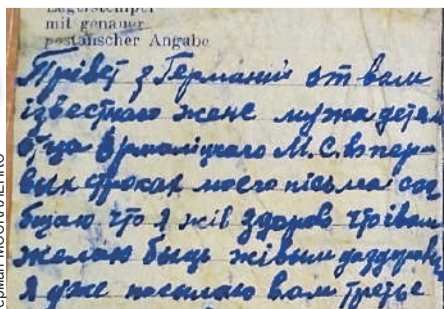 Lagerstempel
mit genauer
postalischer Angabe
Прівет з Германіи от вам
ізвестного жене мужа детям
отца Ермаліцкаго М.С. в пер
вых строках моего пісьма соо
бщаю что я жів здоров что і вам
желаю быць жівым да здоровым
Я уже посылаю вам третье